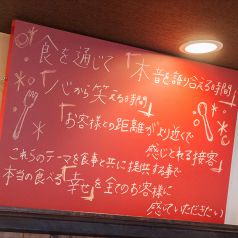 食を通じて「本音を語り合える時間」
「心から笑える時間」
「お客様との距離がより近くで
感じとれる接客」
これらのテーマを食事と共に提供する事で
本当の食べる「幸せ」を全てのお客様に
感じていただきたい